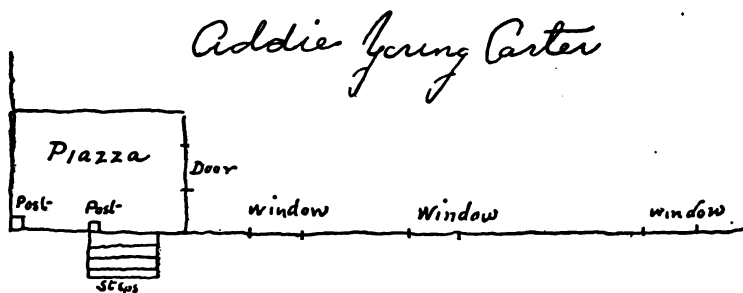 Addie Young Carter
Piazza
Door
Post
Post
window
Window
window
Steps